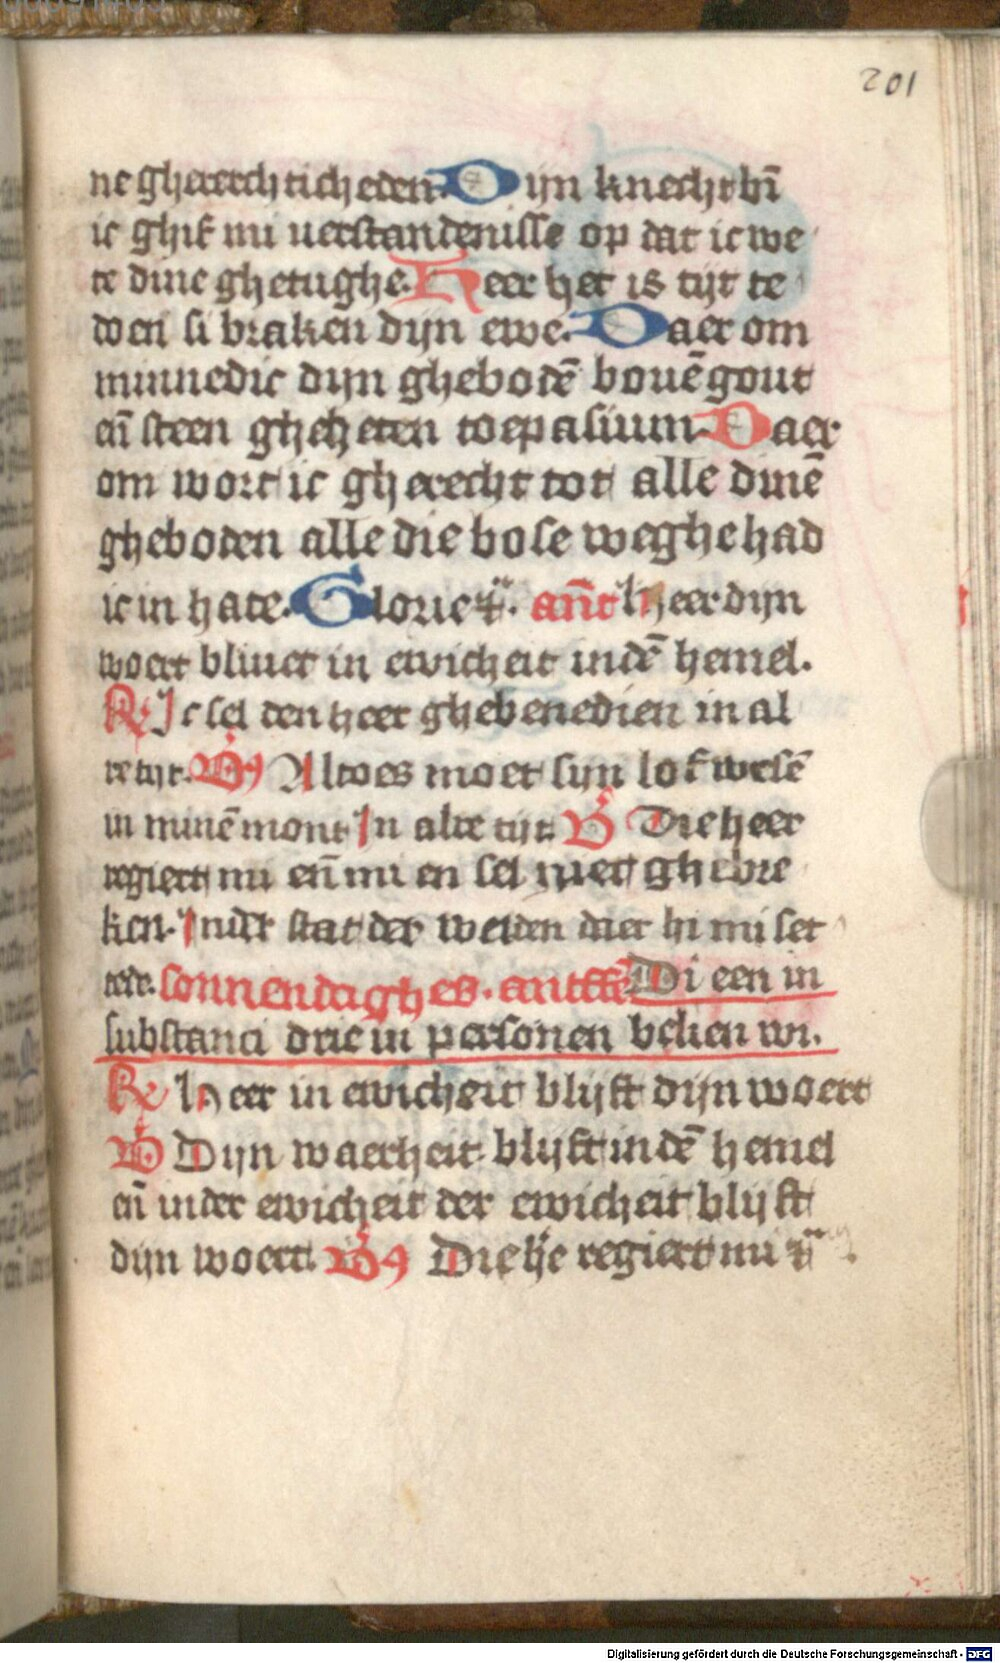 201
ne gherechticheden. Dijn knecht bī
ic ghif mi verstandenisse op dat ic we
te dine ghetughe. Heer het is tijt te
doen si braken dijn ewe. Daer om
minnedic dijn ghebodē bouē gout
eñ steen gheheten toepasium. Daer
om wort ic gherecht tot alle dinē
gheboden alle die bose weghe had
ic in hate. Glorie. ant heer dijn
woert bliuet in ewicheit indē hemel.
R Ic sel den heer ghebenedien in al
re tijt. V Altoes moet sijn lof wesē
in minē mont In alre tijt V Die heer
regiert mi eñ mi en sel niet ghebre
ken. In der stat der weiden daer hi mi set
tede. sonnendaghes. Di een in
substanci drie in personen belien wi.
R Heer in ewicheit blijft dijn woert
V Dijn waerheit blijft indē hemel
eñ in der ewicheit der ewicheit blijft
dijn woert. V Die he regiert mi
Digitalisierung gefördert durch die Deutsche Forschungsgemeinschaft - DFG